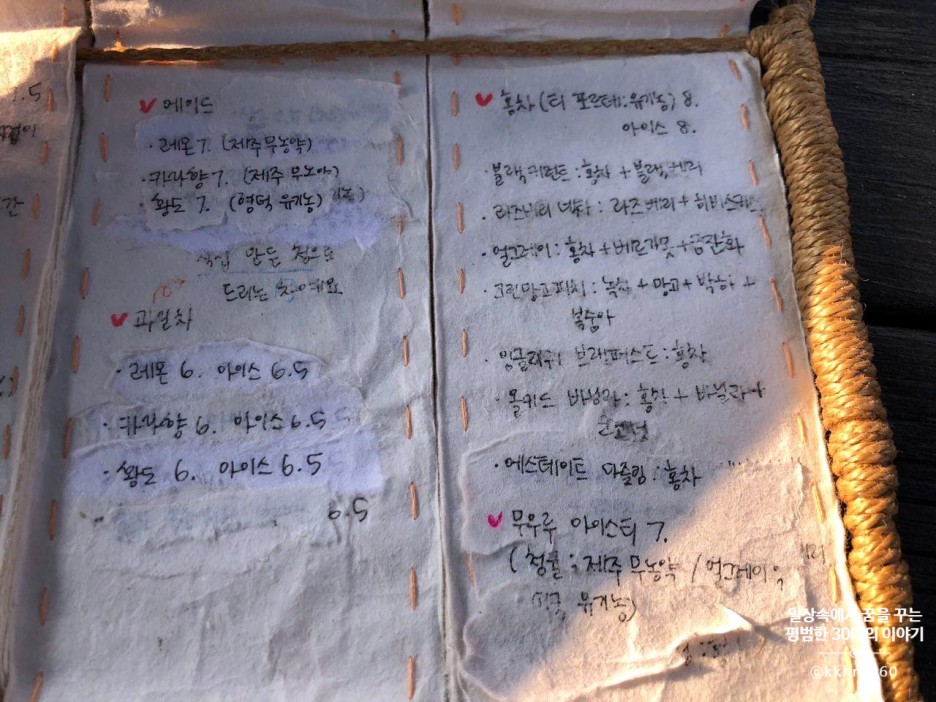 에이드
· 레몬 7. (제주 무농약)
· 카라향 7. (제주 무농약)
· 황도 7. (영덕 유기농)
직접 만든 청으로
드리는 차예요
과일차
· 레몬 6. 아이스 6.5
· 카라향 6. 아이스 6.5
· 황도 6. 아이스 6.5
6.5
홍차 (티 포르테:유기농) 8.
아이스 8.
· 블랙커런트 : 홍차 + 블랙베리
· 라즈베리 넥타 : 라즈베리 + 히비스커스
· 얼그레이 : 홍차 + 베르가못 + 금잔화
· 그린망고피치 : 녹차 + 망고 + 박하 +
복숭아
· 잉글리쉬 브랙퍼스트 : 홍차
· 오키드 바닐라 : 홍차 + 바닐라 +
코코넛
· 에스테이트 다즐링 : 홍차
무우루 아이스티 7.
(청귤 : 제주 무농약 / 얼그레이 :
유기농)
일상속에서 꿈을 꾸는
평범한 30대의 이야기